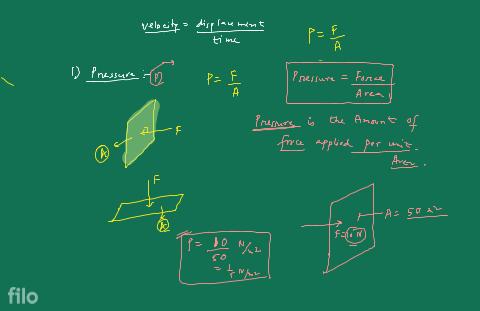 velocity = displacement / time
P = F / A
1) Pressure:- P
P = F / A
Pressure = Force / Area
Pressure is the Amount of
force applied per unit
Area.
F
A
F
A
A = 50 m2
F = 10 N
P = 10 / 50 N/m2
= 1/5 N/m2
filo